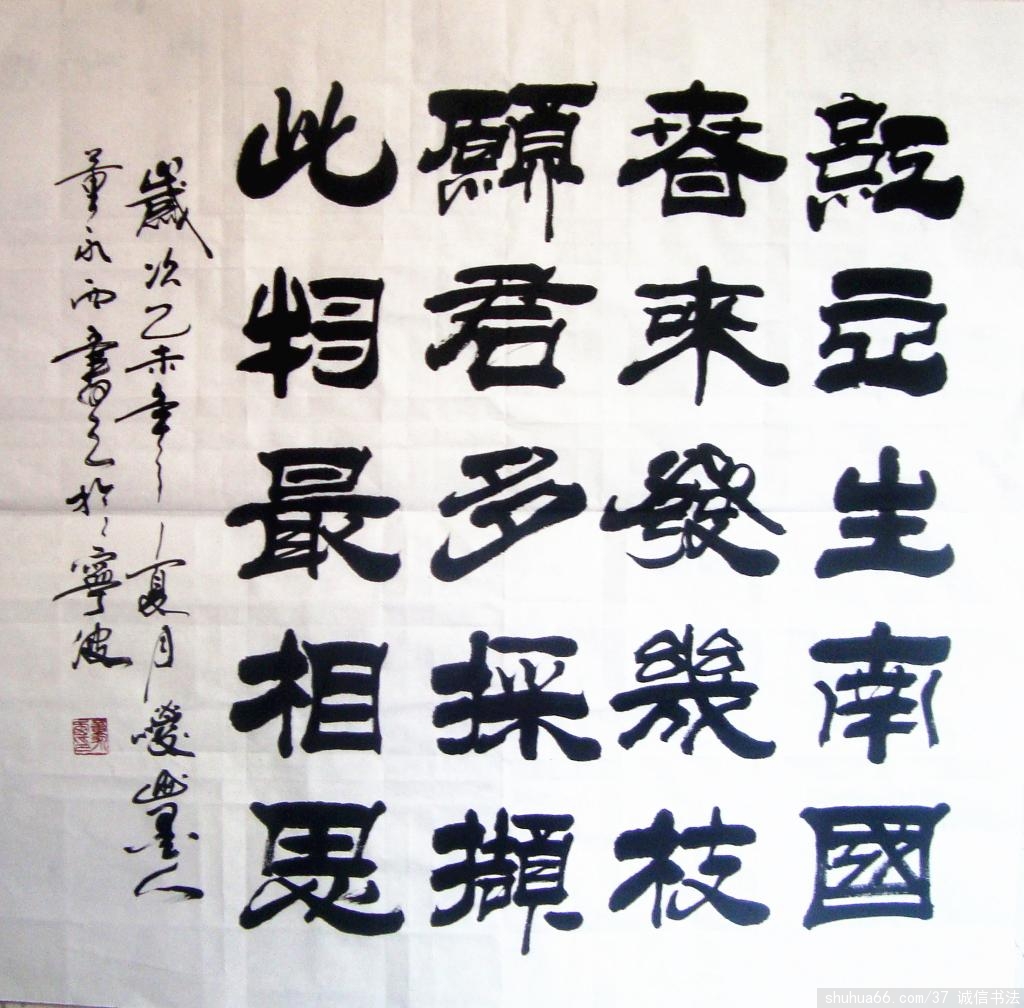 紅豆生南國
春來發幾枝
願君多採擷
此物最相思
歲次乙未年夏月墨人
董永書之於寧波
shuhua66.com/37 诚信书法